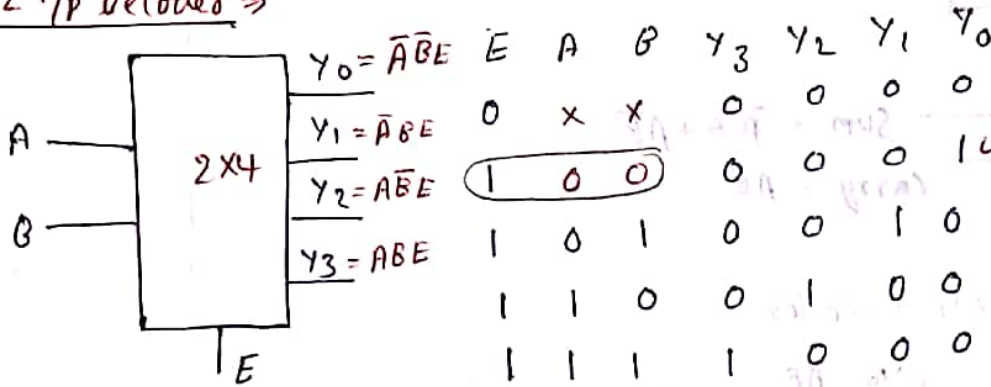 2 I/p Decoder ⇒
Y0 = A̅ B̅ E
Y1 = A̅ B E
Y2 = A B̅ E
Y3 = A B E
A
B
2X4
E
E A B Y3 Y2 Y1 Y0
0 x x 0 0 0 0
1 0 0 0 0 0 1
1 0 1 0 0 1 0
1 1 0 0 1 0 0
1 1 1 1 0 0 0